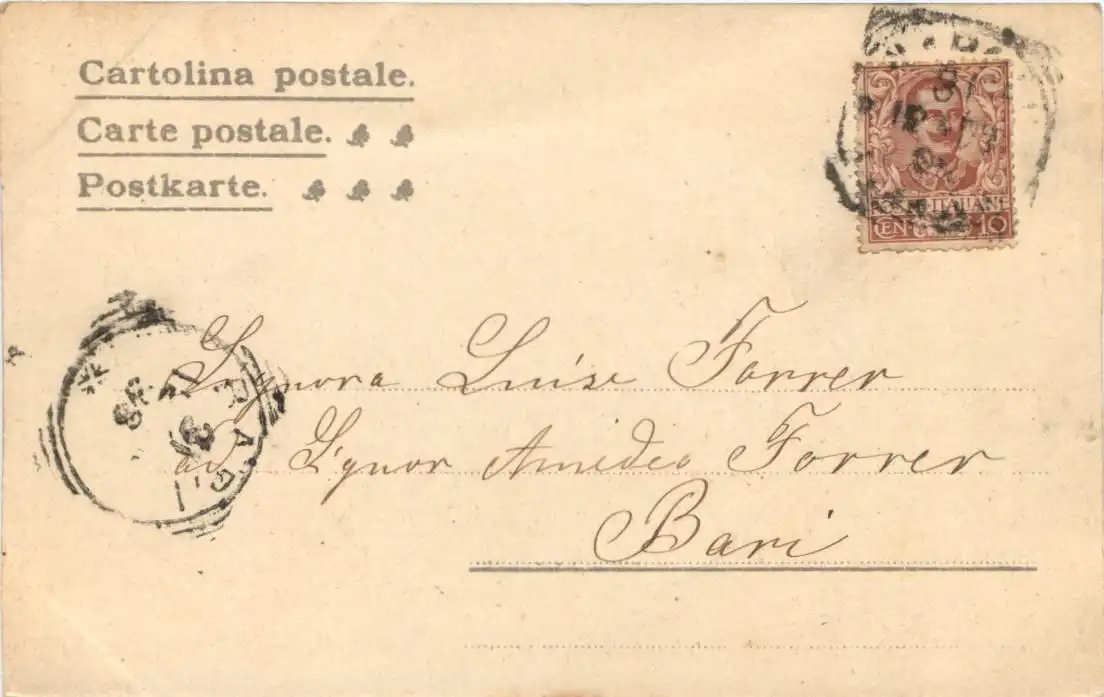 Cartolina postale.
Carte postale.
Postkarte.
ITALIANE
CEN. 10
Signora Luise Forrer
ed Signor Amideo Forrer
Bari
BARI